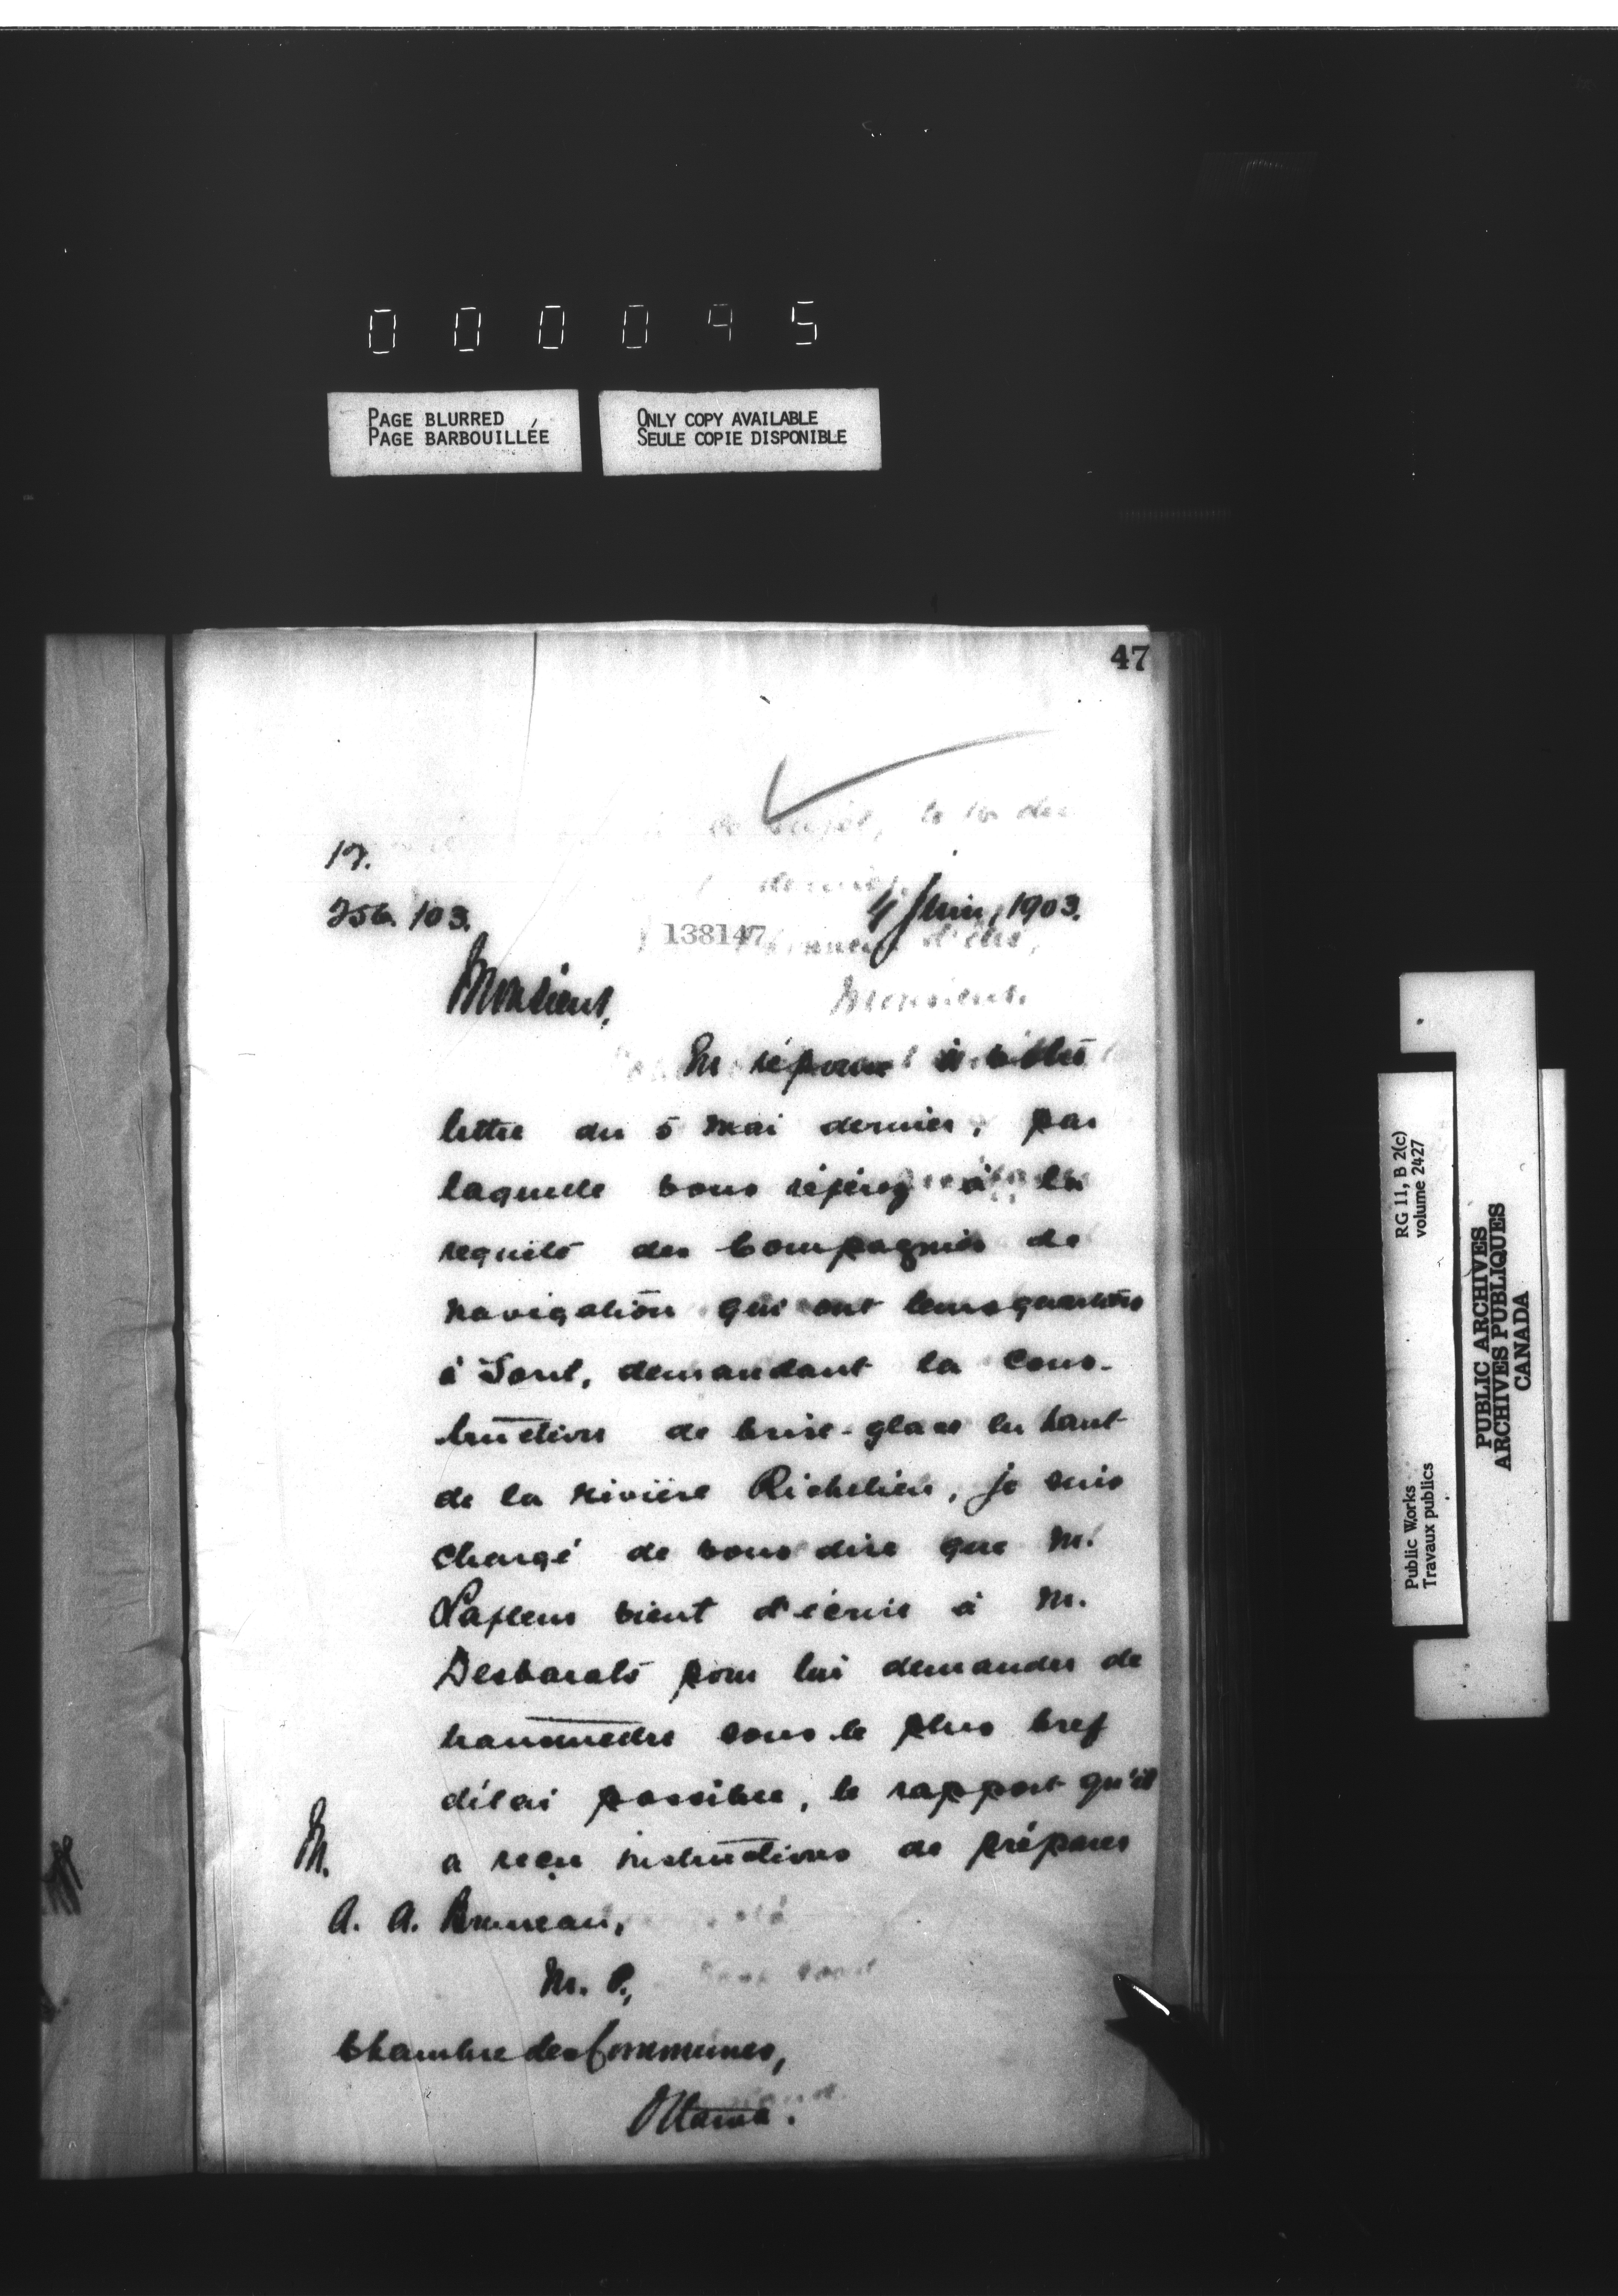 000095
PAGE BLURRED
PAGE BARBOUILLÉE
ONLY COPY AVAILABLE
SEULE COPIE DISPONIBLE
47
ce sujet, le 10 du
dernier.
17.
256. /03.
4 Juin, 1903.
138147
d'être,
Monsieur,
Monsieur.
En réponse à votre
lettre du 5 mai dernier, par
laquelle vous référez à la
requête des Compagnies de
navigation qui ont leurs quartiers
à Sorel, demandant la cons-
truction de brise-glace en haut
de la rivière Richelieu, je suis
chargé de vous dire que M.
Lafleur vient d'écrire à M.
Desbarats pour lui demander de
transmettre sous le plus bref
délai possible, le rapport qu'il
a reçu instructions de préparer
M.
A. A. Bruneau,
M. P.,
Chambre des Communes,
Ottawa.
RG 11, B 2(c)
volume 2427
Public Works
Travaux publics
PUBLIC ARCHIVES
ARCHIVES PUBLIQUES
CANADA